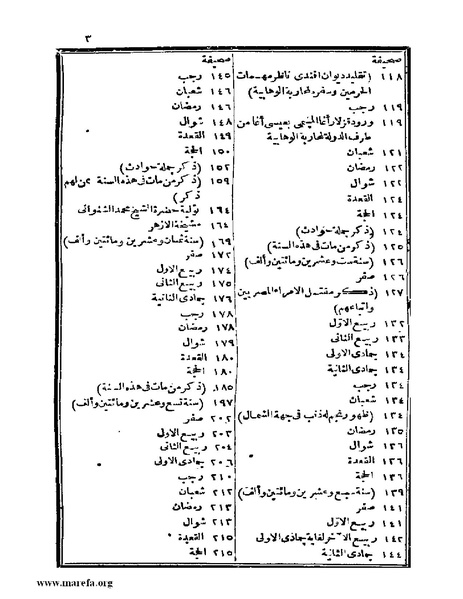 ٣
صحيفة
١١٨ (تقليد ديوان افندى ناظر مهمات
الحرمين وسفره لمحاربة الوهابية)
١١٩ رجب
١١٩ ورود قزلار أغا المسمى بعيسى أغا من
طرف الدولة لمحاربة الوهابية
١٢١ شعبان
١٢٢ رمضان
١٢٢ شوال
١٢٤ القعدة
١٢٤ الحجة
١٢٤ (ذكر جملة حوادث)
١٢٥ (ذكر من مات فى هذه السنة)
١٢٦ (سنة ست وعشرين ومائتين وألف)
١٢٦ صفر
١٢٧ (ذكر مقتل الامراء المصريين
واتباعهم)
١٣٢ ربيع الاول
١٣٣ ربيع الثانى
١٣٤ جمادى الاولى
١٣٤ جمادى الثانية
١٣٤ رجب
١٣٤ شعبان
١٣٤ (ظهور نجم له ذنب فى جهة الشمال)
١٣٥ رمضان
١٣٦ شوال
١٣٦ القعدة
١٣٦ الحجة
١٣٩ (سنة سبع وعشرين ومائتين وألف)
١٤١ صفر
١٤١ ربيع الاول
١٤٢ ربيع الآخر لغاية جمادى الاولى
١٤٤ جمادى الثانية
صحيفة
١٤٥ رجب
١٤٦ شعبان
١٤٦ رمضان
١٤٨ شوال
١٤٩ القعدة
١٥٠ الحجة
١٥٢ (ذكر جملة حوادث)
١٥٩ (ذكر من مات فى هذه السنة ممن لهم
ذكر)
١٦٤ تولية حضرة الشيخ محمد الشنوانى
١٦٤ مشيخة الازهر
١٦٩ (سنة ثمان وعشرين ومائتين وألف)
١٧٢ صفر
١٧٤ ربيع الاول
١٧٥ ربيع الثانى
١٧٦ جمادى الثانية
١٧٨ رجب
١٧٨ رمضان
١٧٩ شوال
١٨٠ القعدة
١٨٠ الحجة
١٨٥ (ذكر من مات فى هذه السنة)
١٩٧ (سنة تسع وعشرين ومائتين وألف)
٢٠٢ صفر
٢٠٣ ربيع الاول
٢٠٤ ربيع الثانى
٢٠٦ جمادى الاولى
٢١٠ رجب
٢١٢ شعبان
٢١٣ رمضان
٢١٣ شوال
٢١٥ القعدة
٢١٥ الحجة
www.marefa.org